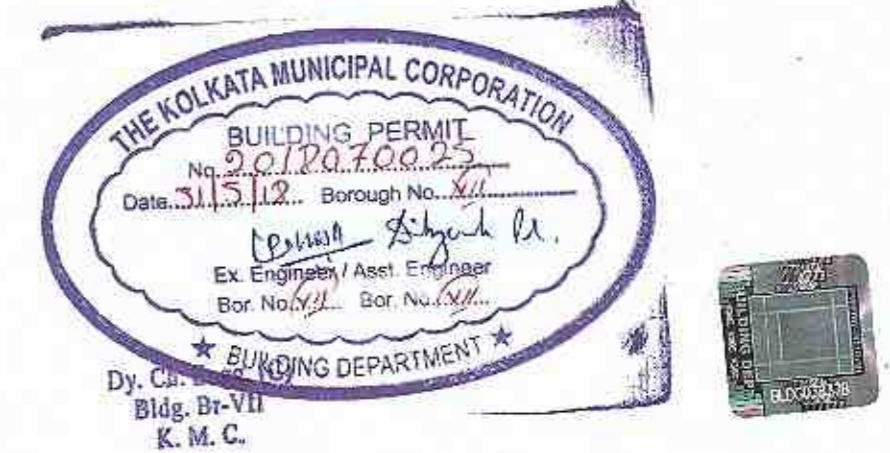 THE KOLKATA MUNICIPAL CORPORATION
BUILDING PERMIT
No 2018070025
Date 31/5/18 Borough No. VII
Ex. Engineer / Asst. Engineer
Bor. No. VII Bor. No. VII
★ BUILDING DEPARTMENT ★
Dy. Ch.
Bldg. Br-VII
K. M. C.
BUILDING DEP